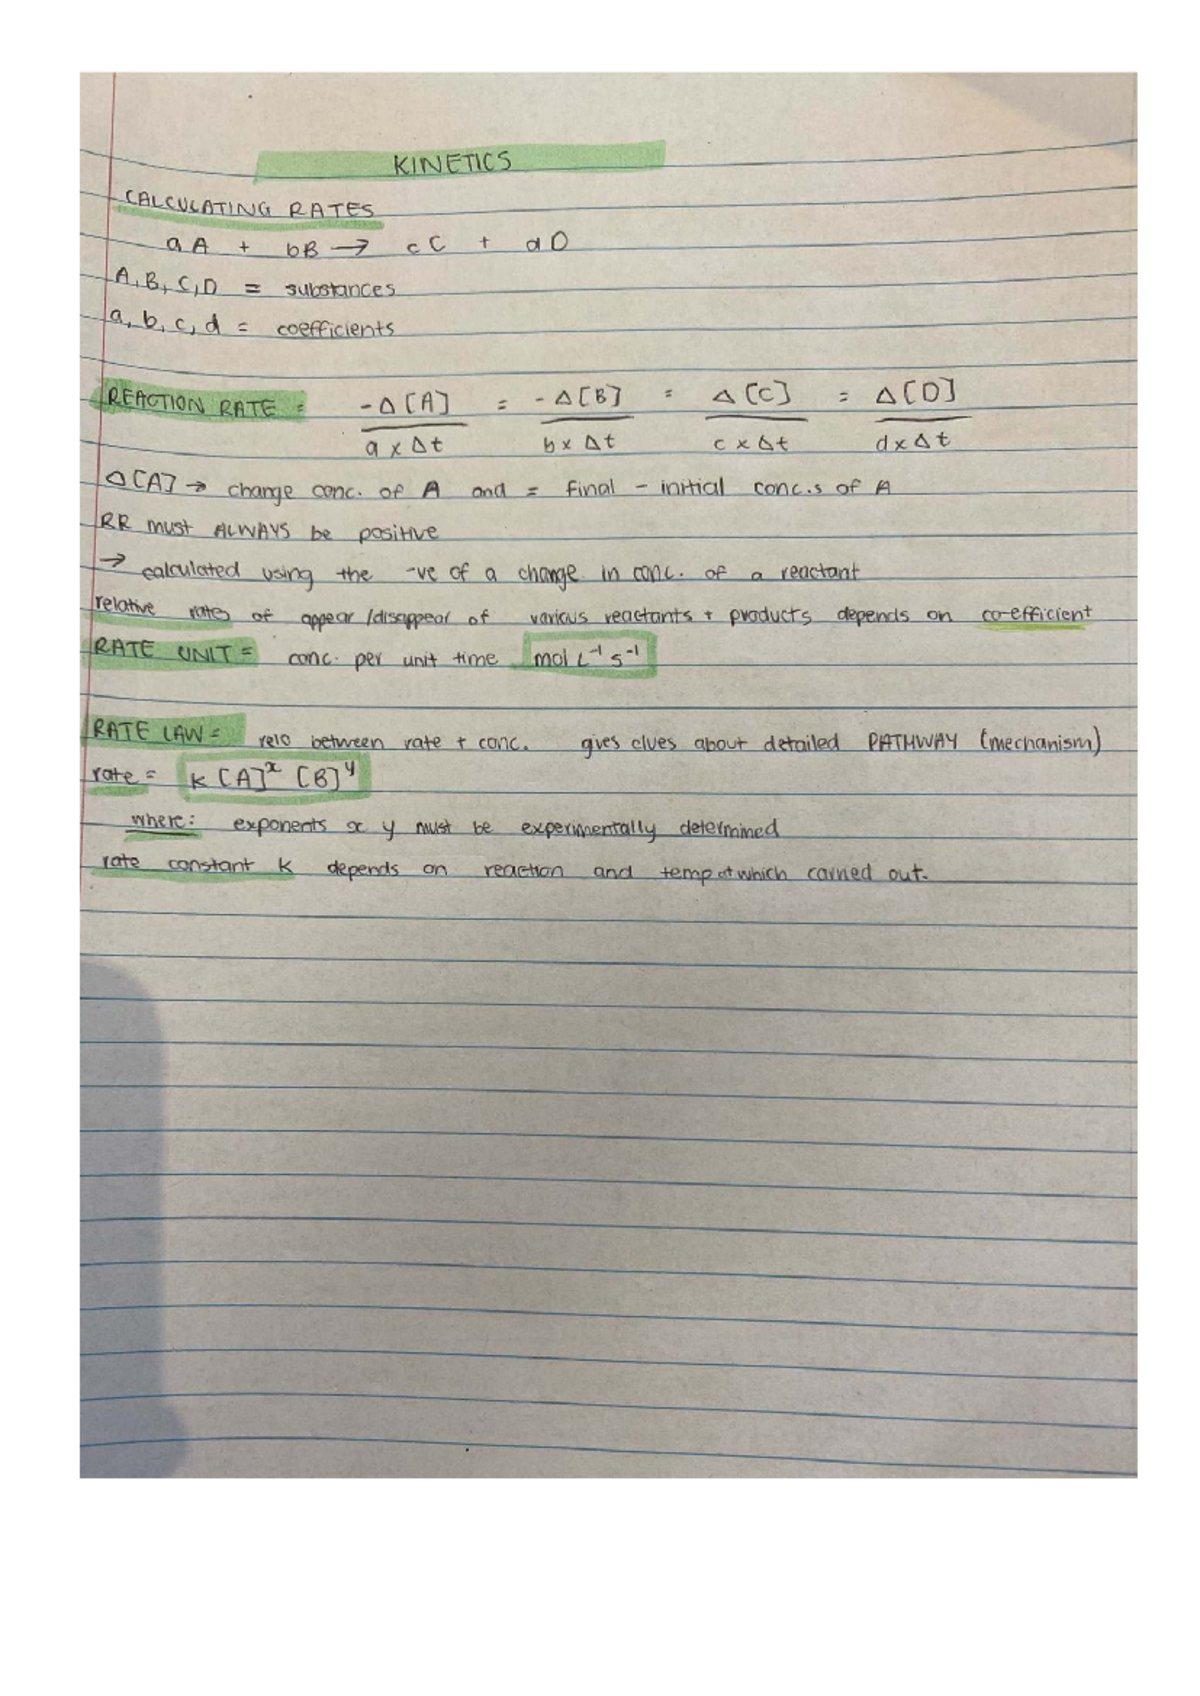 KINETICS
CALCULATING RATES
aA + bB → cC + dD
A, B, C, D = substances
a, b, c, d = coefficients
REACTION RATE = -Δ[A] / a x Δt = -Δ[B] / b x Δt = Δ[C] / c x Δt = Δ[D] / d x Δt
Δ[A] → change conc. of A and = final - initial conc.s of A
RR must ALWAYS be positive
→ calculated using the -ve of a change in conc. of a reactant
relative rates of appear/disappear of various reactants + products depends on co-efficient
RATE UNIT = conc. per unit time mol L⁻¹ s⁻¹
RATE LAW = relo between rate + conc. gives clues about detailed PATHWAY (mechanism)
rate = k [A]ˣ [B]ʸ
where: exponents x y must be experimentally determined
rate constant k depends on reaction and temp at which carried out.